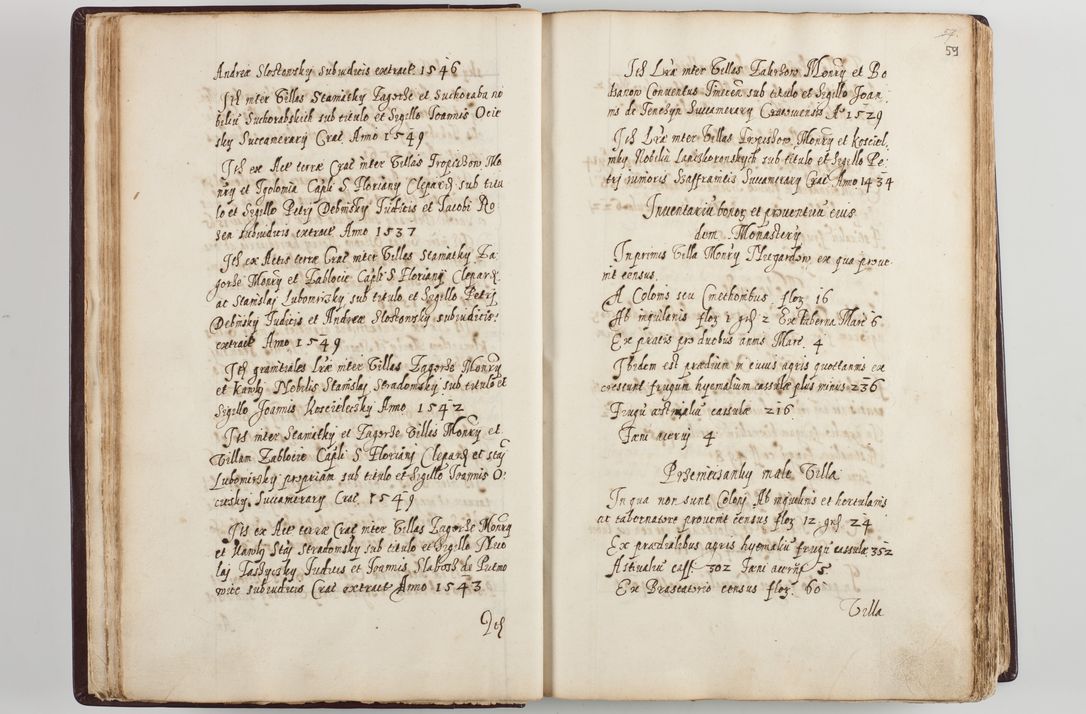 Andreæ Slostowsky Subiudicis extract. 1546
Ité inter Villas Staniątky Zagorze et Suchoraba no
biliũ Suchorabskich sub titulo et Sigillo Joannis Ocie
sky Succamerarij Crac̃ Anno 1549
Ité ex Act̃ terræ Crac̃ inter Villas Tropiszow Mo
nrij et Igolomia Capli S Floriany Cleparđ sub titu
lo et Sigillo Petrj Debinsky Judicis et Jacobi Ro
sen subiudicis extract̃ Anno 1537
Ité ex Actis terræ Crac̃ inter Villas Staniątky Za
gorze Monrij et Zablocie Capli S Florianj Cleparđ.
ac Stanislaj Lubomirsky sub titulo et Sigillo Petrj
Debinsky Judicis et Andreæ Slostowsky subiudicis
extract̃ Anno 1549
Ité granitiales Lræ inter Villas Zagorze Monrij
et Kawky Nobilis Stanislaj Stradomsky sub titulo et
Sigillo Joannis Koscielecsky Anno 1542
Ité inter Staniątky et Zagorze Villas Monrij et
Villam Zablocie Capli S Floriany Cleparđ et Staj
Lubomirsky propriam sub titulo et Sigillo Joannis O
ciesky Succamerary Crac̃ 1549
Ité ex Act̃ terræ Crac̃ inter Villas Zagorze Monrij
et Kawky Staj Stradomsky sub titulo et Sigillo Nico
laj Taszycsky Judicis et Joannis Slabosz de Putnio
wice subiudicis Crac̃ extract̃ Anno 1543
Ité
59
Ité Lræ inter Villas Zakrzow Monrij et Bo
hanow Conventus Tinicen sub titulo et Sigillo Joan
nis de Tenczyn Succamerary Cracoviensis Aº 1529
Ité Lræ inter Villas Tropiszow Monrij et Kosciel
niky Nobiliũ Lapiskoronskych sub titulo et Sigillo Pe
trj iunioris Szaffraniecis Succamerary Crac̃ Anno 1434
Inventariũ bonor̃ et proventuũ eius
dem Monastery
Inprimis Villa Monrij Niegardow, ex qua prove
nit census
A Colonis seu Cmethonibus flor̃ 16
Ab inquilinis flor̃ 1 gr̃ 2 Ex taberna Marc̃ 6
Ex pratis pro duobus annis Marc. 4
Ibidem est prædium in cuius agris quottannis ex
crescunt frugum hyemalium cassulæ plus minus 236
Frugũ æstivaliũ cassulæ 216
Fæni acervj 4
Przemeczanky male Villa
In qua non sunt Colonj Ab inquilinis et hortulanis
ac tabernatore provenit census flor̃ 12. gr̃ 24
Ex prædialibus agris hyemaliũ frugũ cassulæ 352
Æstivaliũ cass̃ 302 Fæni acerṽ 5
Ex Braseatorio census flor̃. 60
Villa